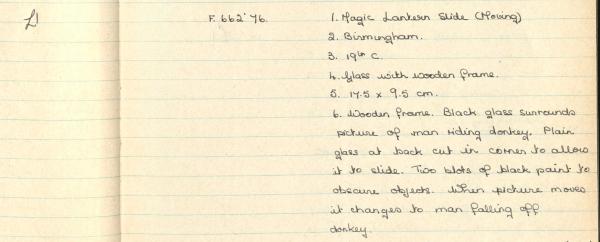 £1
F. 662'76.
1. Magic Lantern Slide (Moving)
2. Birmingham.
3. 19th C.
4. Glass with wooden frame.
5. 17.5 x 9.5 cm.
6. Wooden frame. Black glass surrounds
picture of man riding donkey. Plain
glass at back cut in corner to allow
it to slide. Two blots of black paint to
obscure objects. When picture moves
it changes to man falling off
donkey.